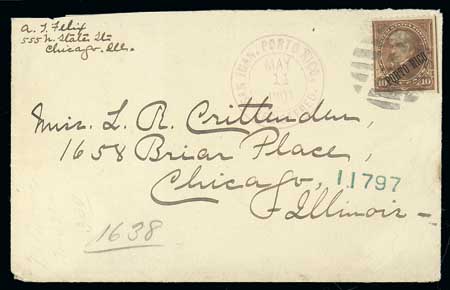 A. T. Felix
555 N. State St.
Chicago. Ills.
SAN JUAN, PORTO RICO.
MAY
1901
PORTO RICO
10 10
Miss. L. R. Crittenden,
1658 Briar Place,
Chicago,
11797
Illinois
1638